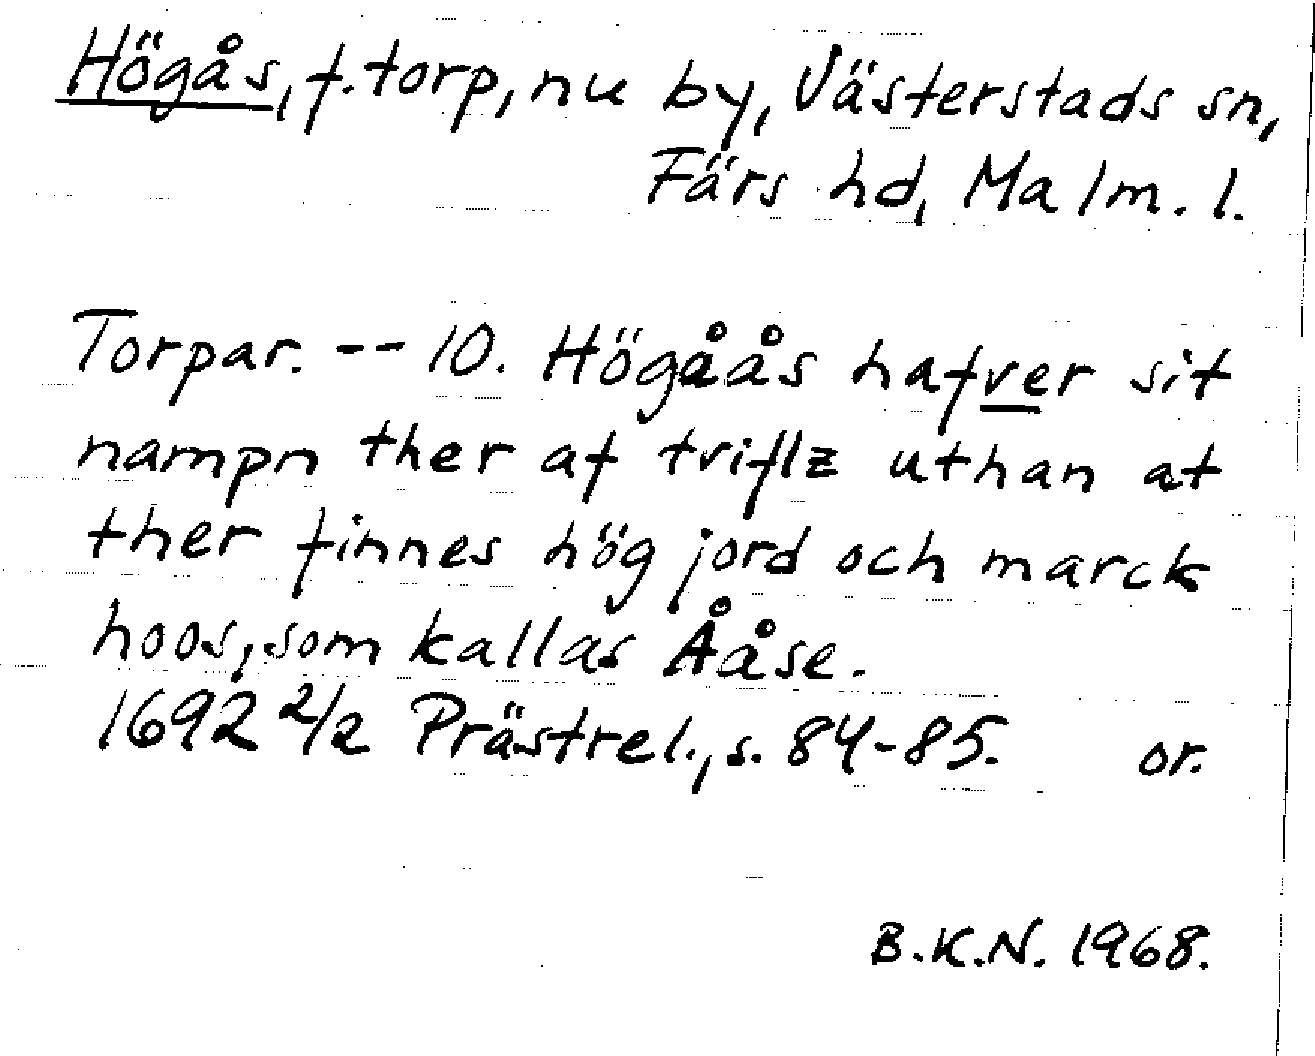 Högås, f. torp, nu by, Västerstads sn,
Färs hd, Malm. l.
Torpar. -- 10. Högåås hafver sit
nampn ther af tviflz uthan at
ther finnes hög jord och marck
hoos, som kallas Ååse.
1692 2/2 Prästrel., s. 84-85. or.
B.K.N. 1968.